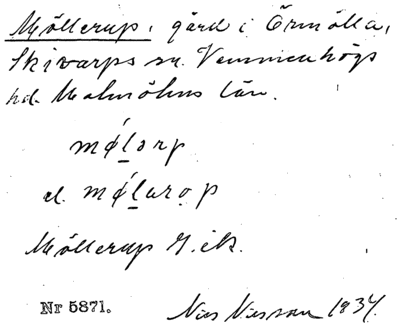 Möllerup, gård i Örmölla,
Skivarps sn. Vemmenhögs
hd. Malmöhus län.
mǿl̲ərp
el. mǿl̲arọp
Möllerup G.ek.
Nr 5871.
Nils Nilsson 1934.